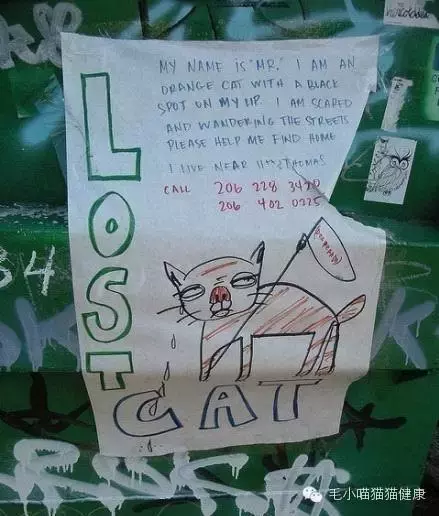 MY NAME IS "MR." I AM AN
ORANGE CAT WITH A BLACK
SPOT ON MY LIP. I AM SCARED
AND WANDERING THE STREETS
PLEASE HELP ME FIND HOME
I LIVE NEAR THOMAS
CALL 206 228 3420
206 402 0225
LOST
CAT
34
毛小喵猫猫健康